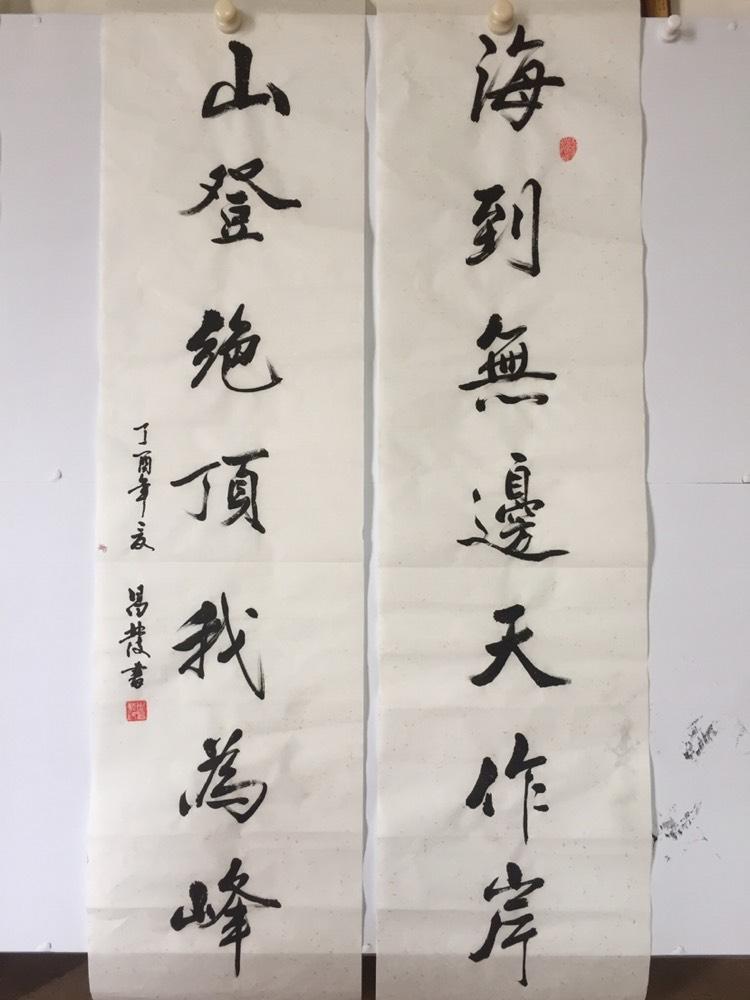 海到無邊天作岸
山登絶頂我為峰
丁酉年夏
昌發書